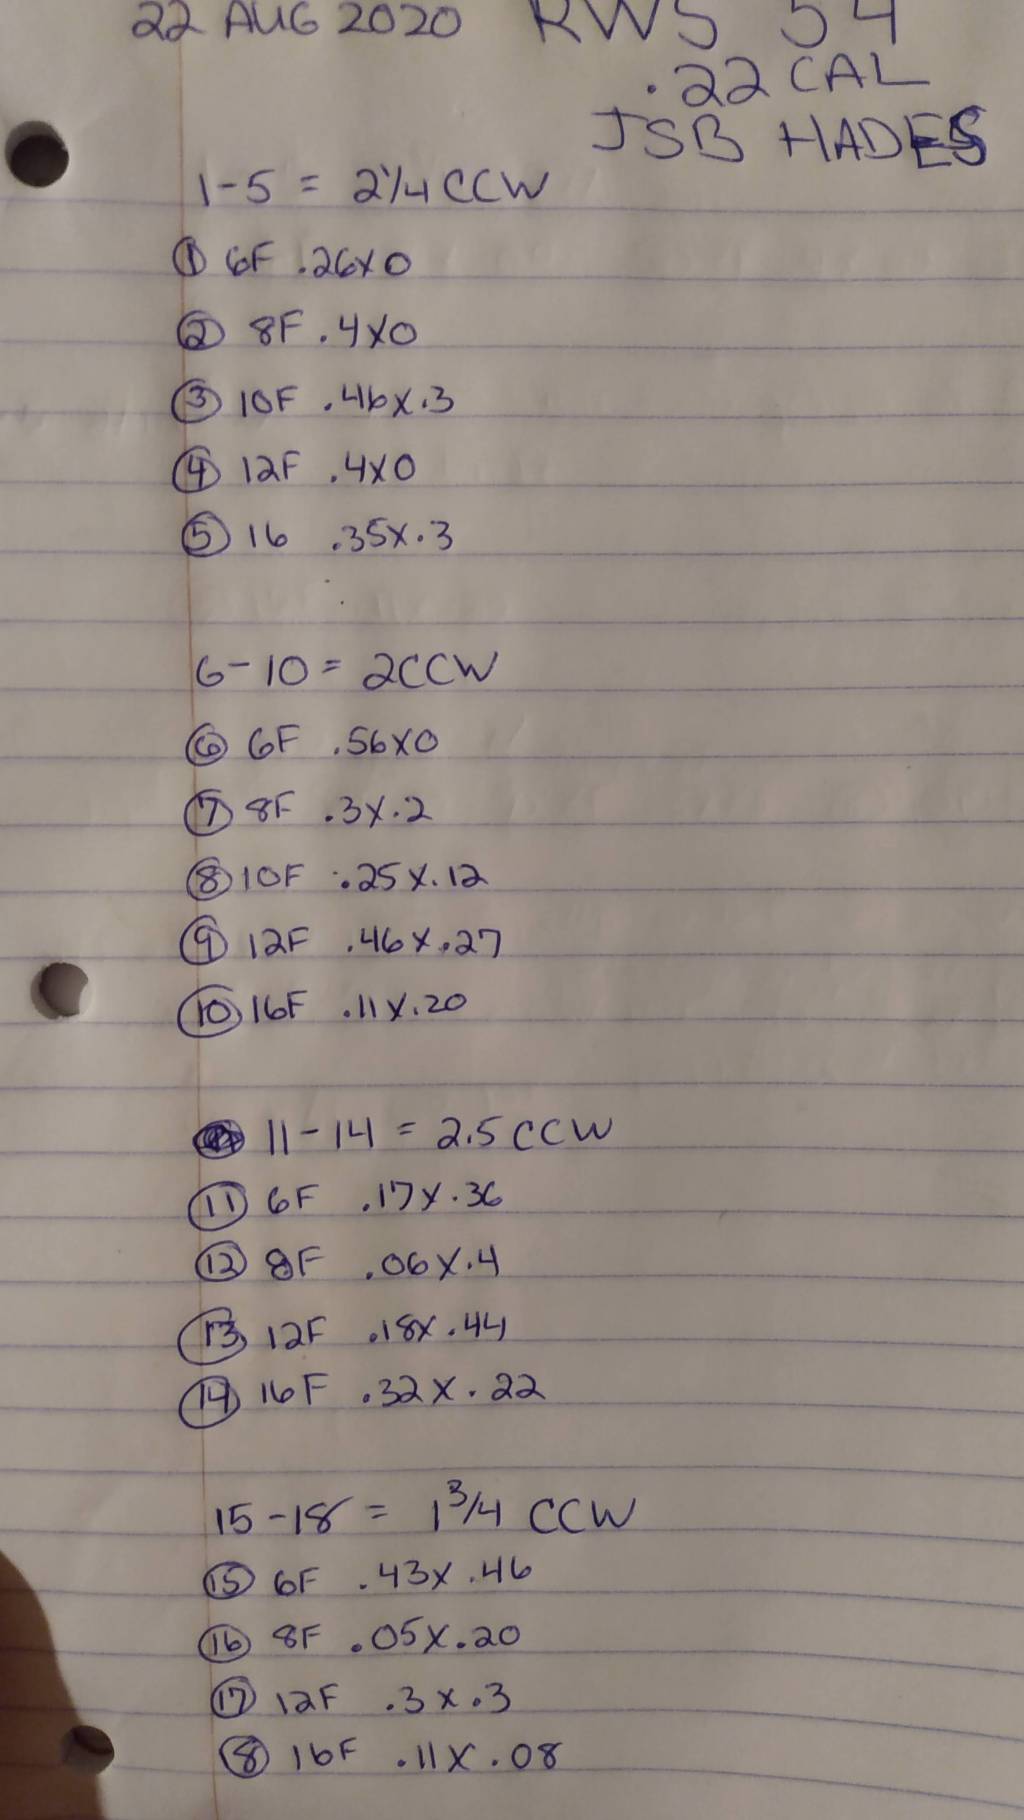 22 AUG 2020 RWS 54
.22 CAL
JSB HADES
1-5 = 2 1/4 CCW
① 6F .26x0
② 8F .4x0
③ 10F .46x.3
④ 12F .4x0
⑤ 16 .35x.3
6-10 = 2CCW
⑥ 6F .56x0
⑦ 8F .3x.2
⑧ 10F .25x.12
⑨ 12F .46x.27
⑩ 16F .11x.20
11-14 = 2.5 CCW
⑪ 6F .17x.36
⑫ 8F .06x.4
⑬ 12F .18x.44
⑭ 16F .32x.22
15-18 = 1 3/4 CCW
⑮ 6F .43x.46
⑯ 8F .05x.20
⑰ 12F .3x.3
⑧ 16F .11x.08